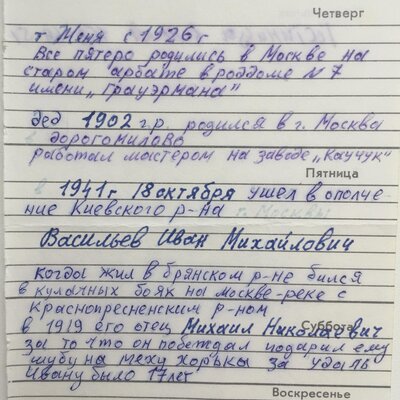 Четверг
т Женя с 1926г
Все пятеро родились в Москве на
старом арбате в роддоме №7
имени „Грауэрмана"
дед 1902 г.р. родился в г. Москва
в дорогомилово
работал мастером на заводе „Каучук"
Пятница
в 1941г 18 октября ушел в ополче-
ние Киевского р-на г. Москвы
Васильев Иван Михайлович
когда жил в брянском р-не бился
в кулачных боях на Москве-реке с
Краснопресненским р-ном
Суббота
в 1919 его отец Михаил Николаевич
за то что он побеждал подарил ему
шубу на меху хорька за удаль
Ивану было 17лет
Воскресенье